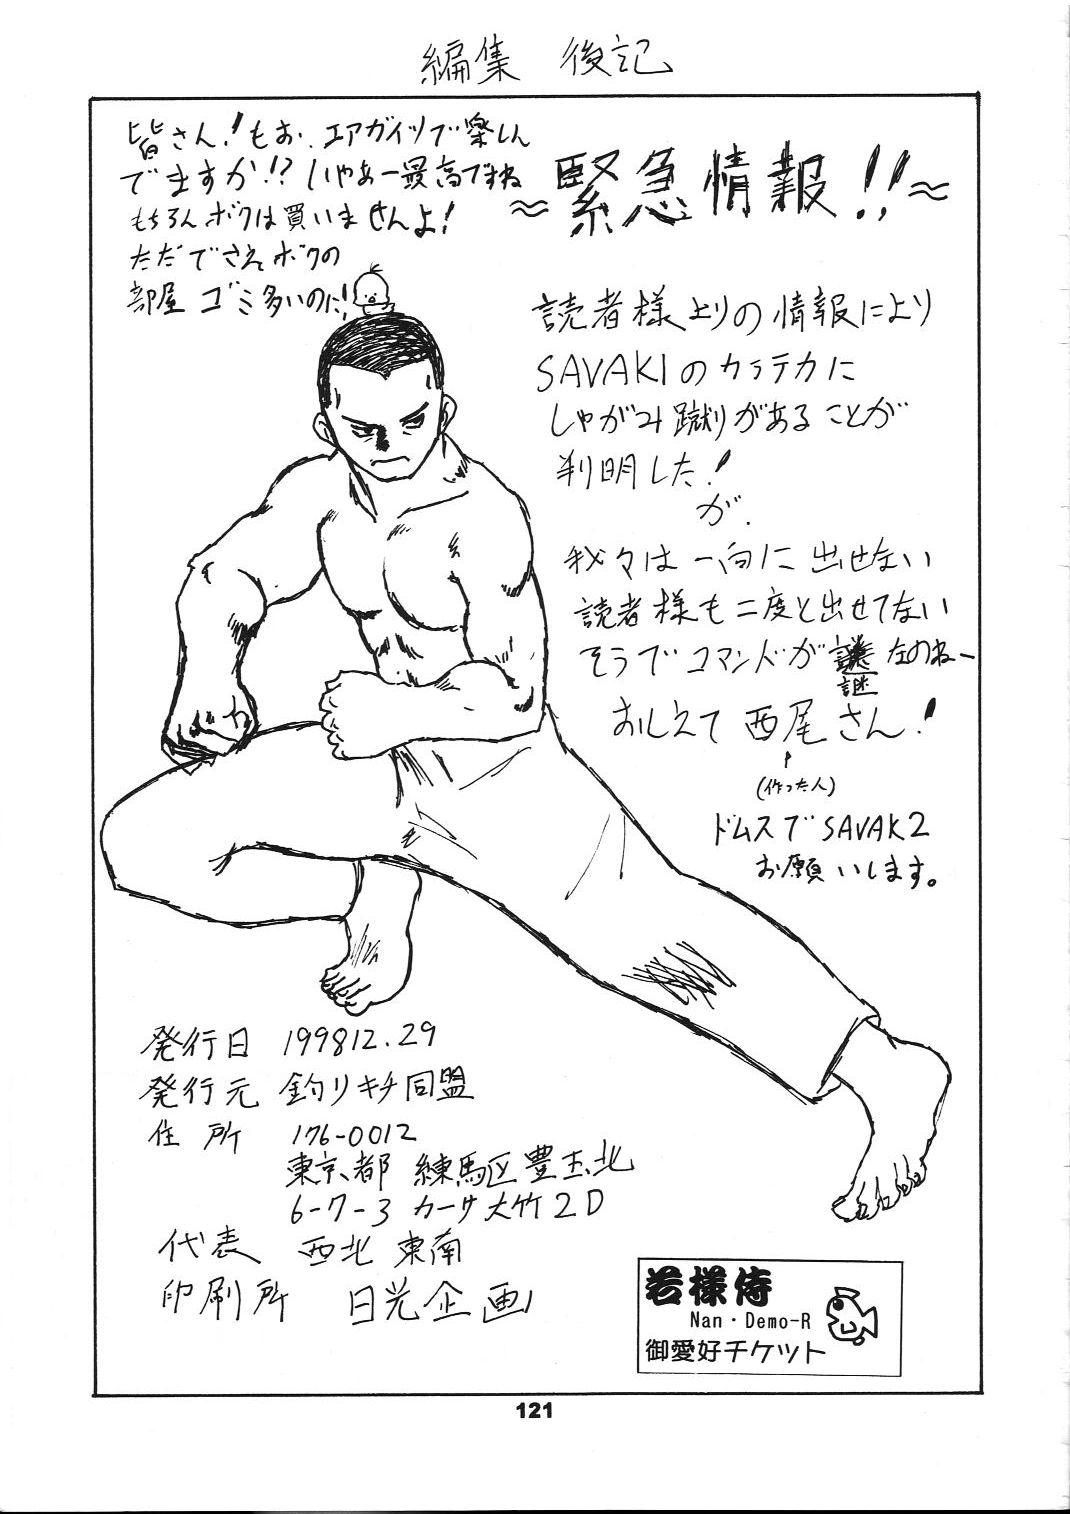 編集 後記
皆さん!もお、エアガイツで楽しん
でますか!? いやあー最高ですね
もちろんボクは買いませんよ!
ただでさえボクの
部屋 ゴミ多いのに!
≈緊急情報!!≈
読者様よりの情報により
SAVAKIのカラテカに
しゃがみ蹴りがあることが
判明した!
が、
我々は一向に出せない
読者様も二度と出せてない
そうでコマンドが謎なのねー
謎
おしえて西尾さん!
(作った人)
ドムスでSAVAK2
お願いします。
発行日 199812.29
発行元 釣りキチ同盟
住所 176-0012
東京都 練馬区豊玉北
6-7-3 カーサ大竹2D
代表 西北 東南
印刷所 日光企画
若様侍
Nan・Demo-R
御愛好チケット
121